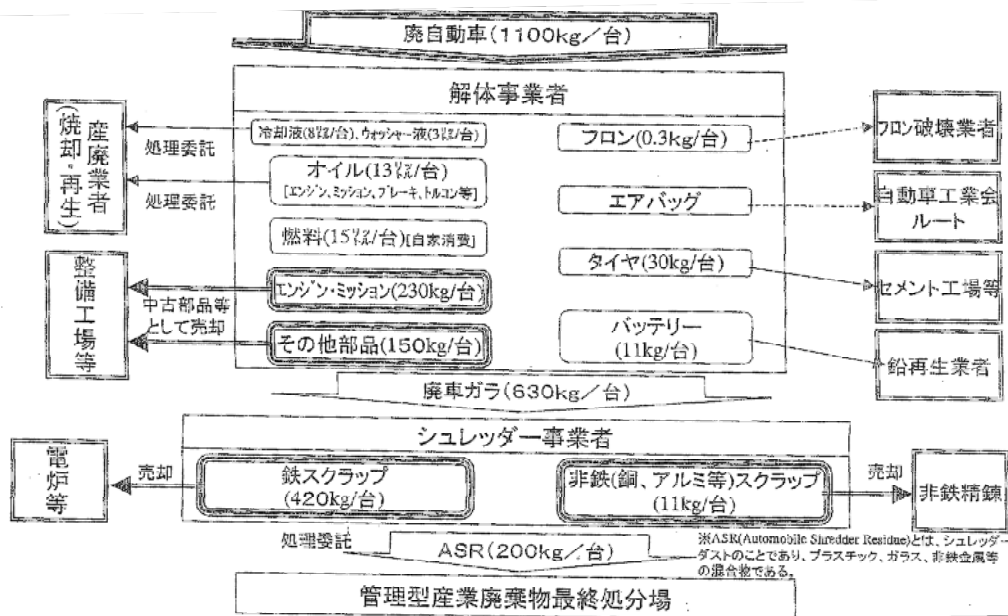 廃自動車(1100kg/台)
解体事業者
産廃業者
(焼却・再生)
処理委託
処理委託
冷却液(8㍑/台)、ウォッシャー液(3㍑/台)
オイル(13㍑/台)
[エンジン、ミッション、ブレーキ、トルコン等]
燃料(15㍑/台)[自家消費]
エンジン・ミッション(230kg/台)
その他部品(150kg/台)
整備工場等
中古部品等
として売却
フロン(0.3kg/台)
エアバッグ
タイヤ(30kg/台)
バッテリー
(11kg/台)
フロン破壊業者
自動車工業会
ルート
セメント工場等
鉛再生業者
廃車ガラ(630kg/台)
シュレッダー事業者
電炉等
売却
鉄スクラップ
(420kg/台)
非鉄(銅、アルミ等)スクラップ
(11kg/台)
売却
非鉄精錬
処理委託
ASR(200kg/台)
※ASR(Automobile Shredder Residue)とは、シュレッダー
ダストのことであり、プラスチック、ガラス、非鉄金属等
の混合物である。
管理型産業廃棄物最終処分場